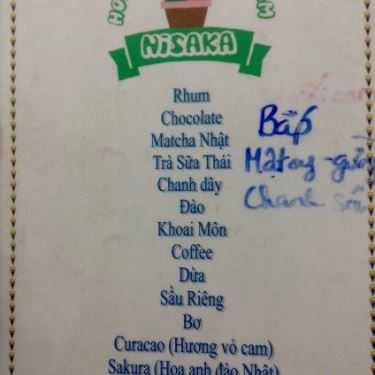 NiSAKA
Rhum
Chocolate
Bắp
Matcha Nhật
Trà Sữa Thái
Mật ong - gừng
Chanh dây
Chanh
Đào
Khoai Môn
Coffee
Dừa
Sầu Riêng
Bơ
Curacao (Hương vỏ cam)
Sakura (Hoa anh đào Nhật)